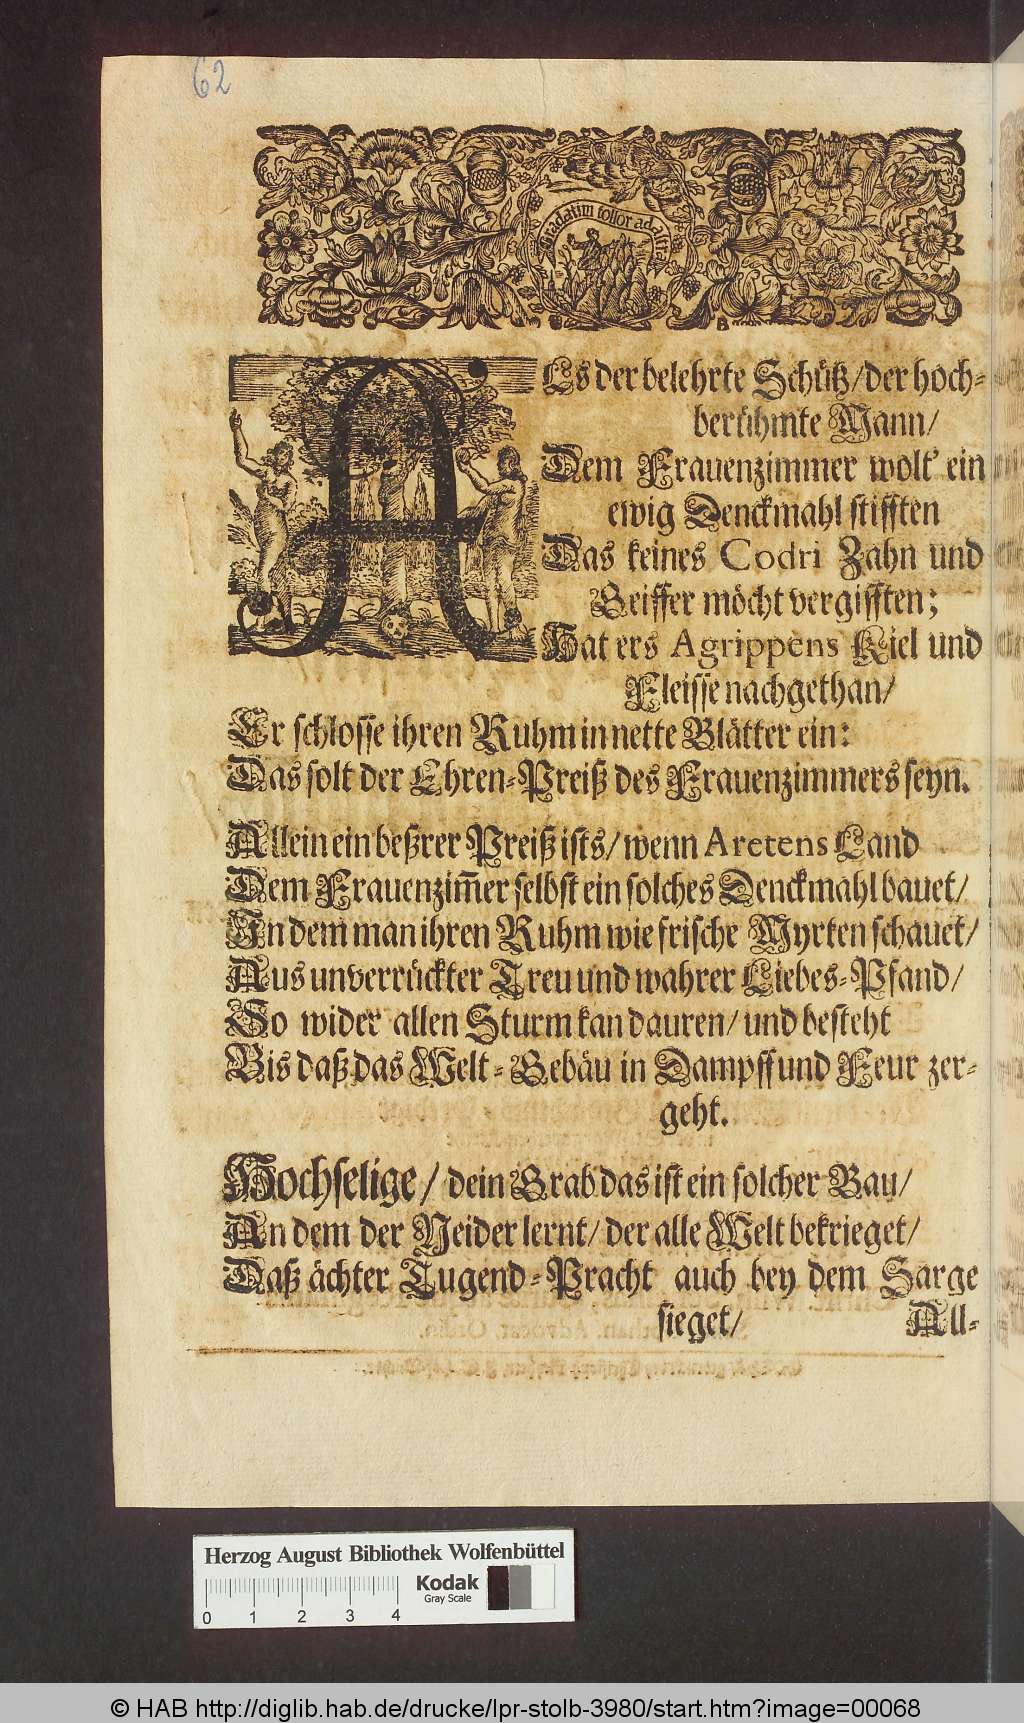 62
Gradatim tollor ad alta
ALs der belehrte Schütz/der hoch-
berühmte Mann/
Dem Frauenzimmer wolt' ein
ewig Denckmahl stifften
Das keines Codri Zahn und
Geiffer möcht vergifften;
Hat ers Agrippens Kiel und
Fleisse nachgethan/
Er schlosse ihren Ruhm in nette Blätter ein:
Das solt der Ehren-Preiß des Frauenzimmers seyn.
Allein ein beßrer Preiß ists/wenn Aretens Hand
Dem Frauenzim̃er selbst ein solches Denckmahl bauet/
In dem man ihren Ruhm wie frische Myrten schauet/
Aus unverrückter Treu und wahrer Liebes-Pfand/
So wider allen Sturm kan dauren/und besteht
Bis daß das Welt-Gebäu in Dampff und Feur zer-
geht.
Hochselige/ dein Grab das ist ein solcher Bau/
An dem der Neider lernt/der alle Welt bekrieget/
Daß ächter Tugend-Pracht auch bey dem Sarge
sieget/ All-
Herzog August Bibliothek Wolfenbüttel
Kodak
Gray Scale
0 1 2 3 4
© HAB http://diglib.hab.de/drucke/lpr-stolb-3980/start.htm?image=00068